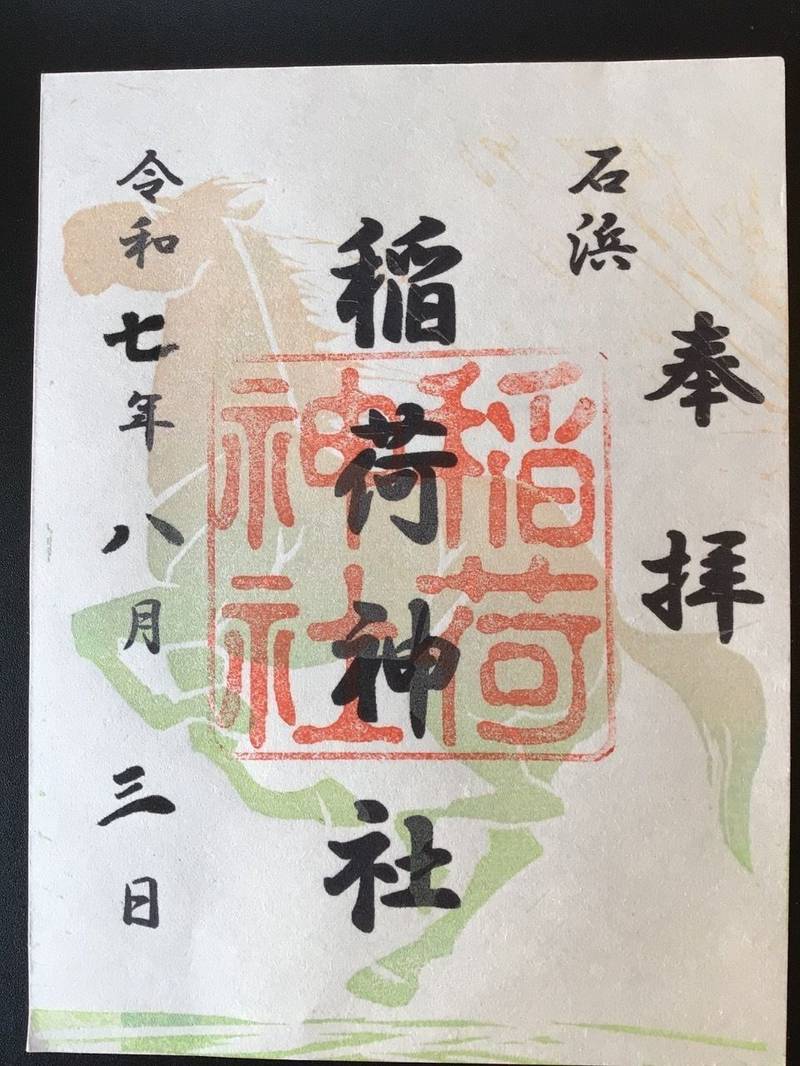 奉拝
石浜
稲荷神社
稲荷神社
令和七年八月三日